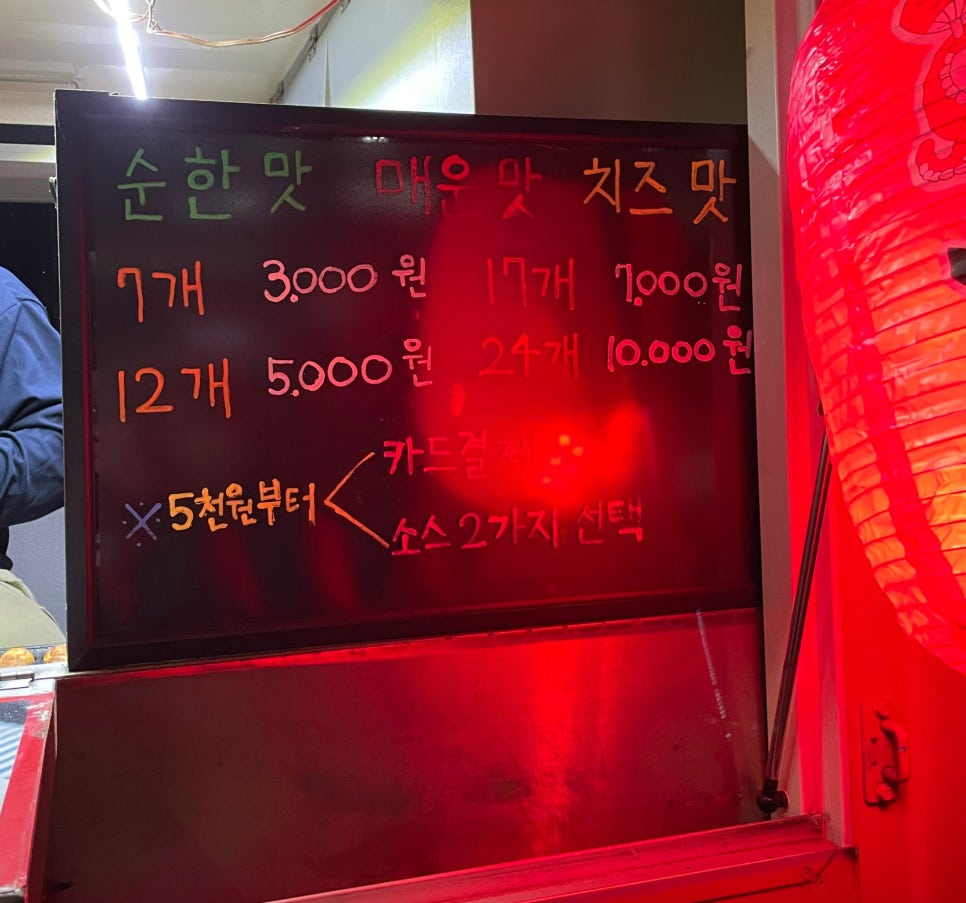 순한맛 매운맛 치즈맛
7개 3.000원 17개 7.000원
12개 5.000원 24개 10.000원
카드결제
※ 5천원부터
소스2가지 선택